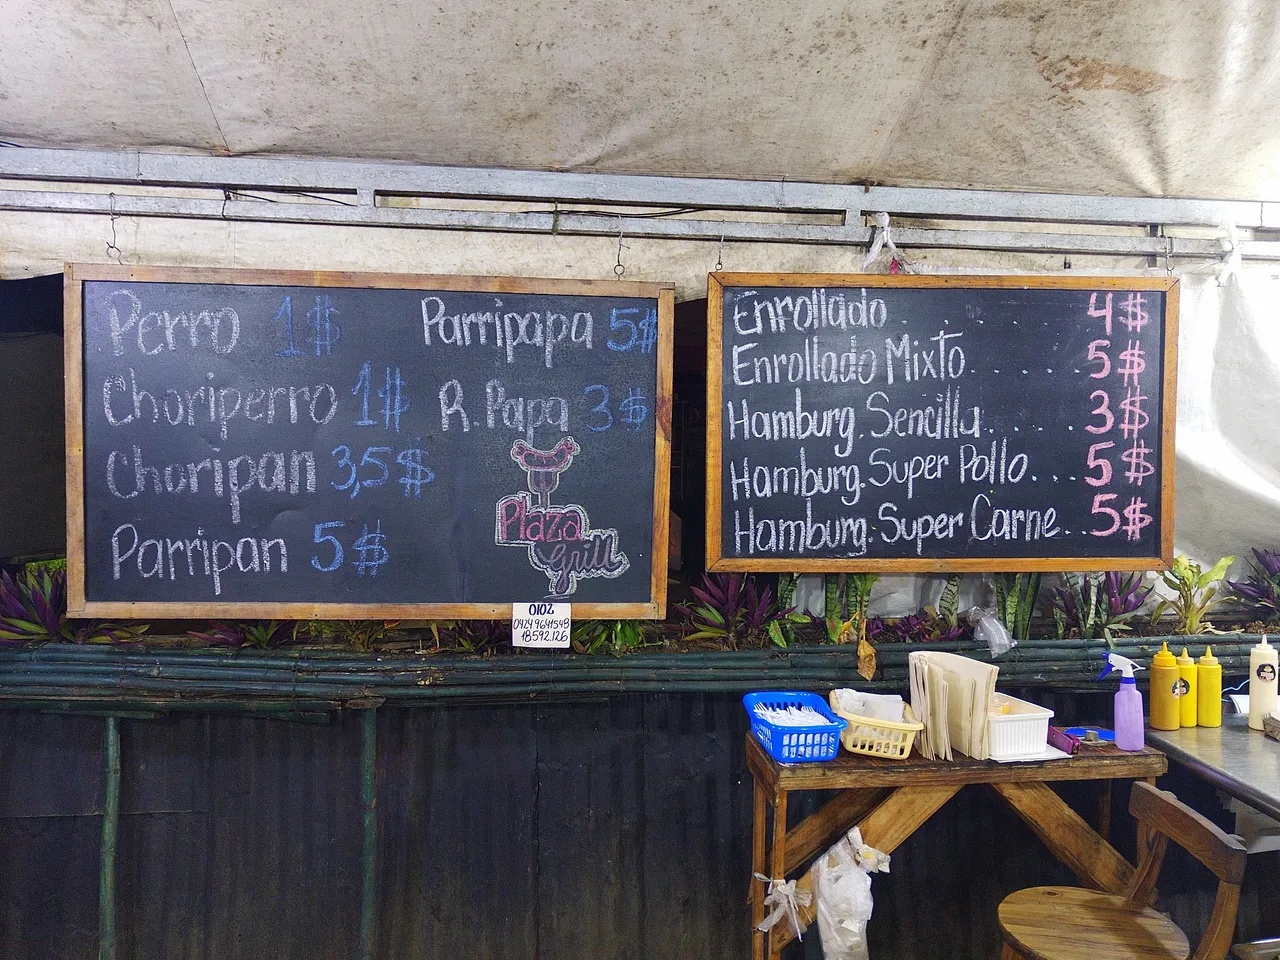 Perro 1$
Choriperro 1$
Choripan 3,5$
Parripan 5$
Parripapa 5$
R. Papa 3$
Plaza
Grill
0102
04249641548
18592.126
Enrollado . . . . . 4$
Enrollado Mixto. . . . . . 5$
Hamburg. Sencilla. . . . . . 3$
Hamburg. Super Pollo. . . . 5$
Hamburg. Super Carne. . . 5$